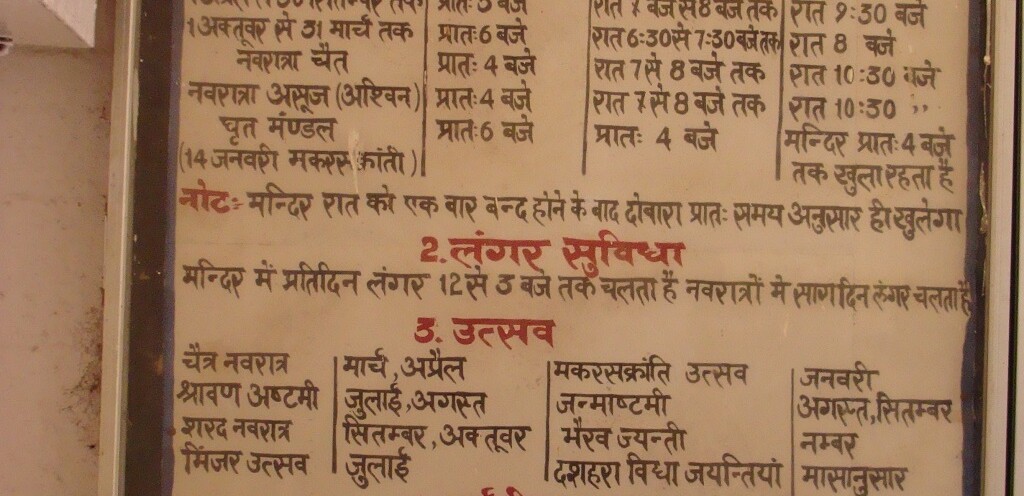 प्रातः 5 बजे रात 7 बजे से 8 बजे तक रात 9:30 बजे
1 अक्तूबर से 31 मार्च तक प्रातः 6 बजे रात 6:30 से 7:30 बजे तक रात 8 बजे
नवरात्रा चैत प्रातः 4 बजे रात 7 से 8 बजे तक रात 10:30 बजे
नवरात्रा असूज (अश्विन) प्रातः 4 बजे रात 7 से 8 बजे तक रात 10:30 ,,
घृत मण्डल प्रातः 6 बजे प्रातः 4 बजे मन्दिर प्रातः 4 बजे
(14 जनवरी मकरसक्रांती) तक खुला रहता है
नोटः- मन्दिर रात को एक बार बन्द होने के बाद दोबारा प्रातः समय अनुसार ही खुलेगा
2. लंगर सुविधा
मन्दिर में प्रतिदिन लंगर 12 से 3 बजे तक चलता है नवरात्रों मे सारा दिन लंगर चलता है
3. उत्सव
चैत्र नवरात्र मार्च, अप्रैल मकरसक्रांति उत्सव जनवरी
श्रावण अष्टमी जुलाई, अगस्त जन्माष्टमी अगस्त, सितम्बर
शरद नवरात्र सितम्बर, अक्तूबर भैरव ज्यन्ती नम्बर
मिंजर उत्सव जुलाई दशहरा विद्या जयन्तियां मासानुसार